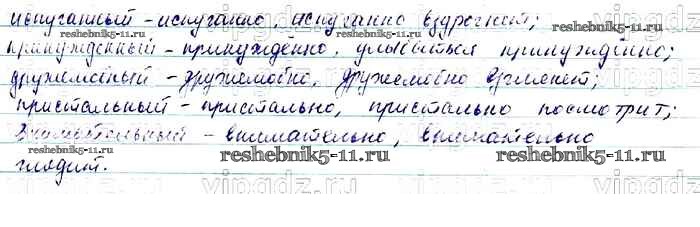 испуганный - испуганно, испуганно вздрогнет;
принужденный - принуждённо, улыбаться принуждённо;
дружелюбный - дружелюбно, дружелюбно взглянет;
пристальный - пристально, пристально посмотрит;
Внимательный - внимательно, внимательно
reshebnik5-11.ru reshebnik5-11.ru
глядит.
vipgdz.ru vipgdz.ru vipgdz.ru